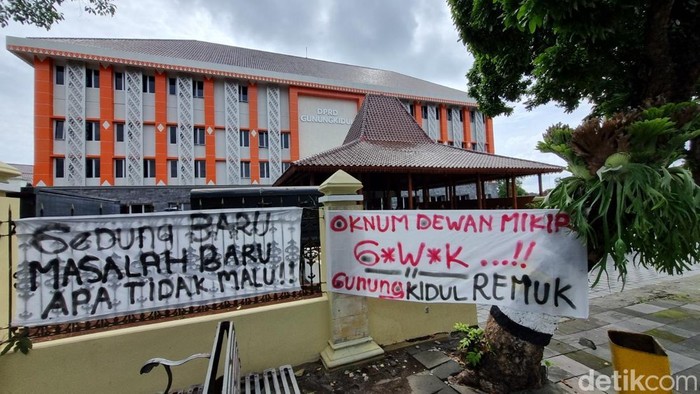 DPRD
GUNUNGKIDUL
GEDUNG BARU
MASALAH BARU
APA TIDAK MALU!!
OKNUM DEWAN MIKIR
G*W*K ...!!
GUNUNGKIDUL REMUK
detikcom